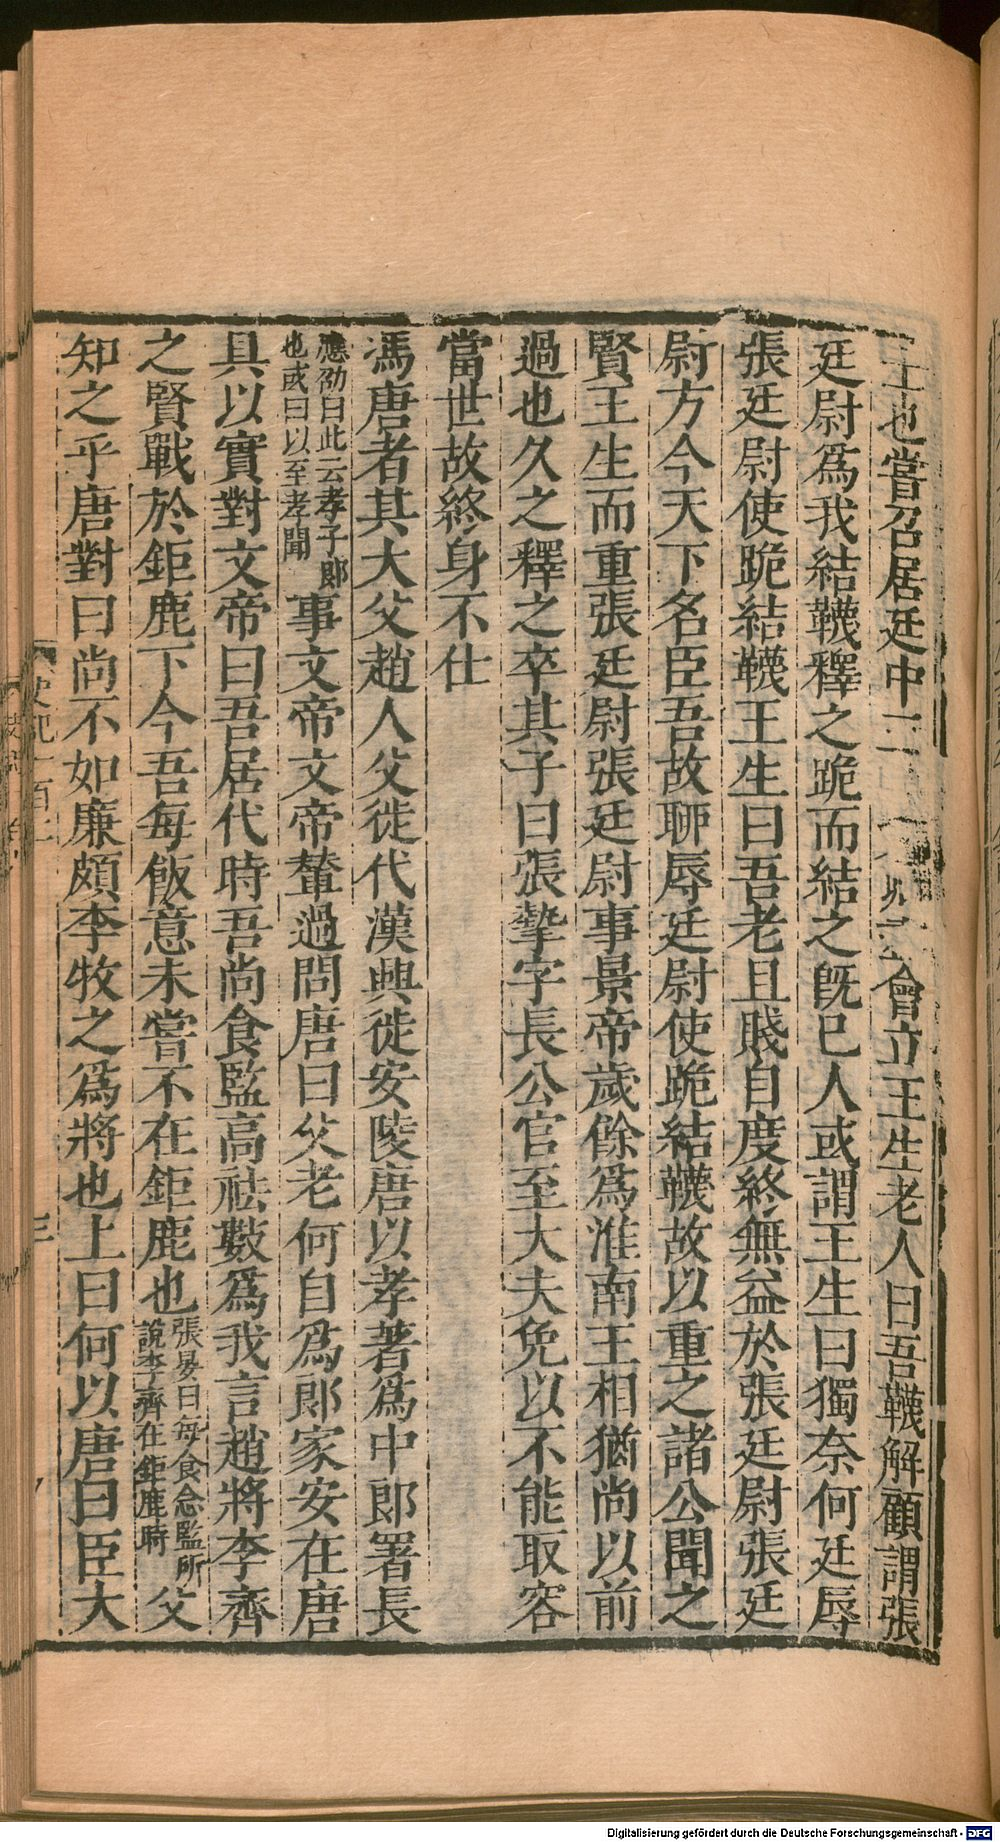 士也嘗召居廷中三 會立王生老人曰吾韈解顧謂張
廷尉爲我結韈釋之跪而結之旣已人或謂王生曰獨奈何廷辱
張廷尉使跪結韈王生曰吾老且賤自度終無益於張廷尉張廷
尉方今天下名臣吾故聊辱廷尉使跪結韈故以重之諸公聞之
賢王生而重張廷尉張廷尉事景帝歲餘爲淮南王相猶尚以前
過也久之釋之卒其子曰張摯字長公官至大夫免以不能取容
當世故終身不仕
馮唐者其大父趙人父徙代漢興徙安陵唐以孝著爲中郎署長
應劭曰此云孝子郎
也或曰以至孝聞
事文帝文帝輦過問唐曰父老何自爲郎家安在唐
具以實對文帝曰吾居代時吾尚食監高祛數爲我言趙將李齊
之賢戰於鉅鹿下今吾每飯意未嘗不在鉅鹿也
張晏曰每食念監所
說李齊在鉅鹿時
父
知之乎唐對曰尚不如廉頗李牧之爲將也上曰何以唐曰臣大
史記一百二
三
Digitalisierung gefördert durch die Deutsche Forschungsgemeinschaft - DFG